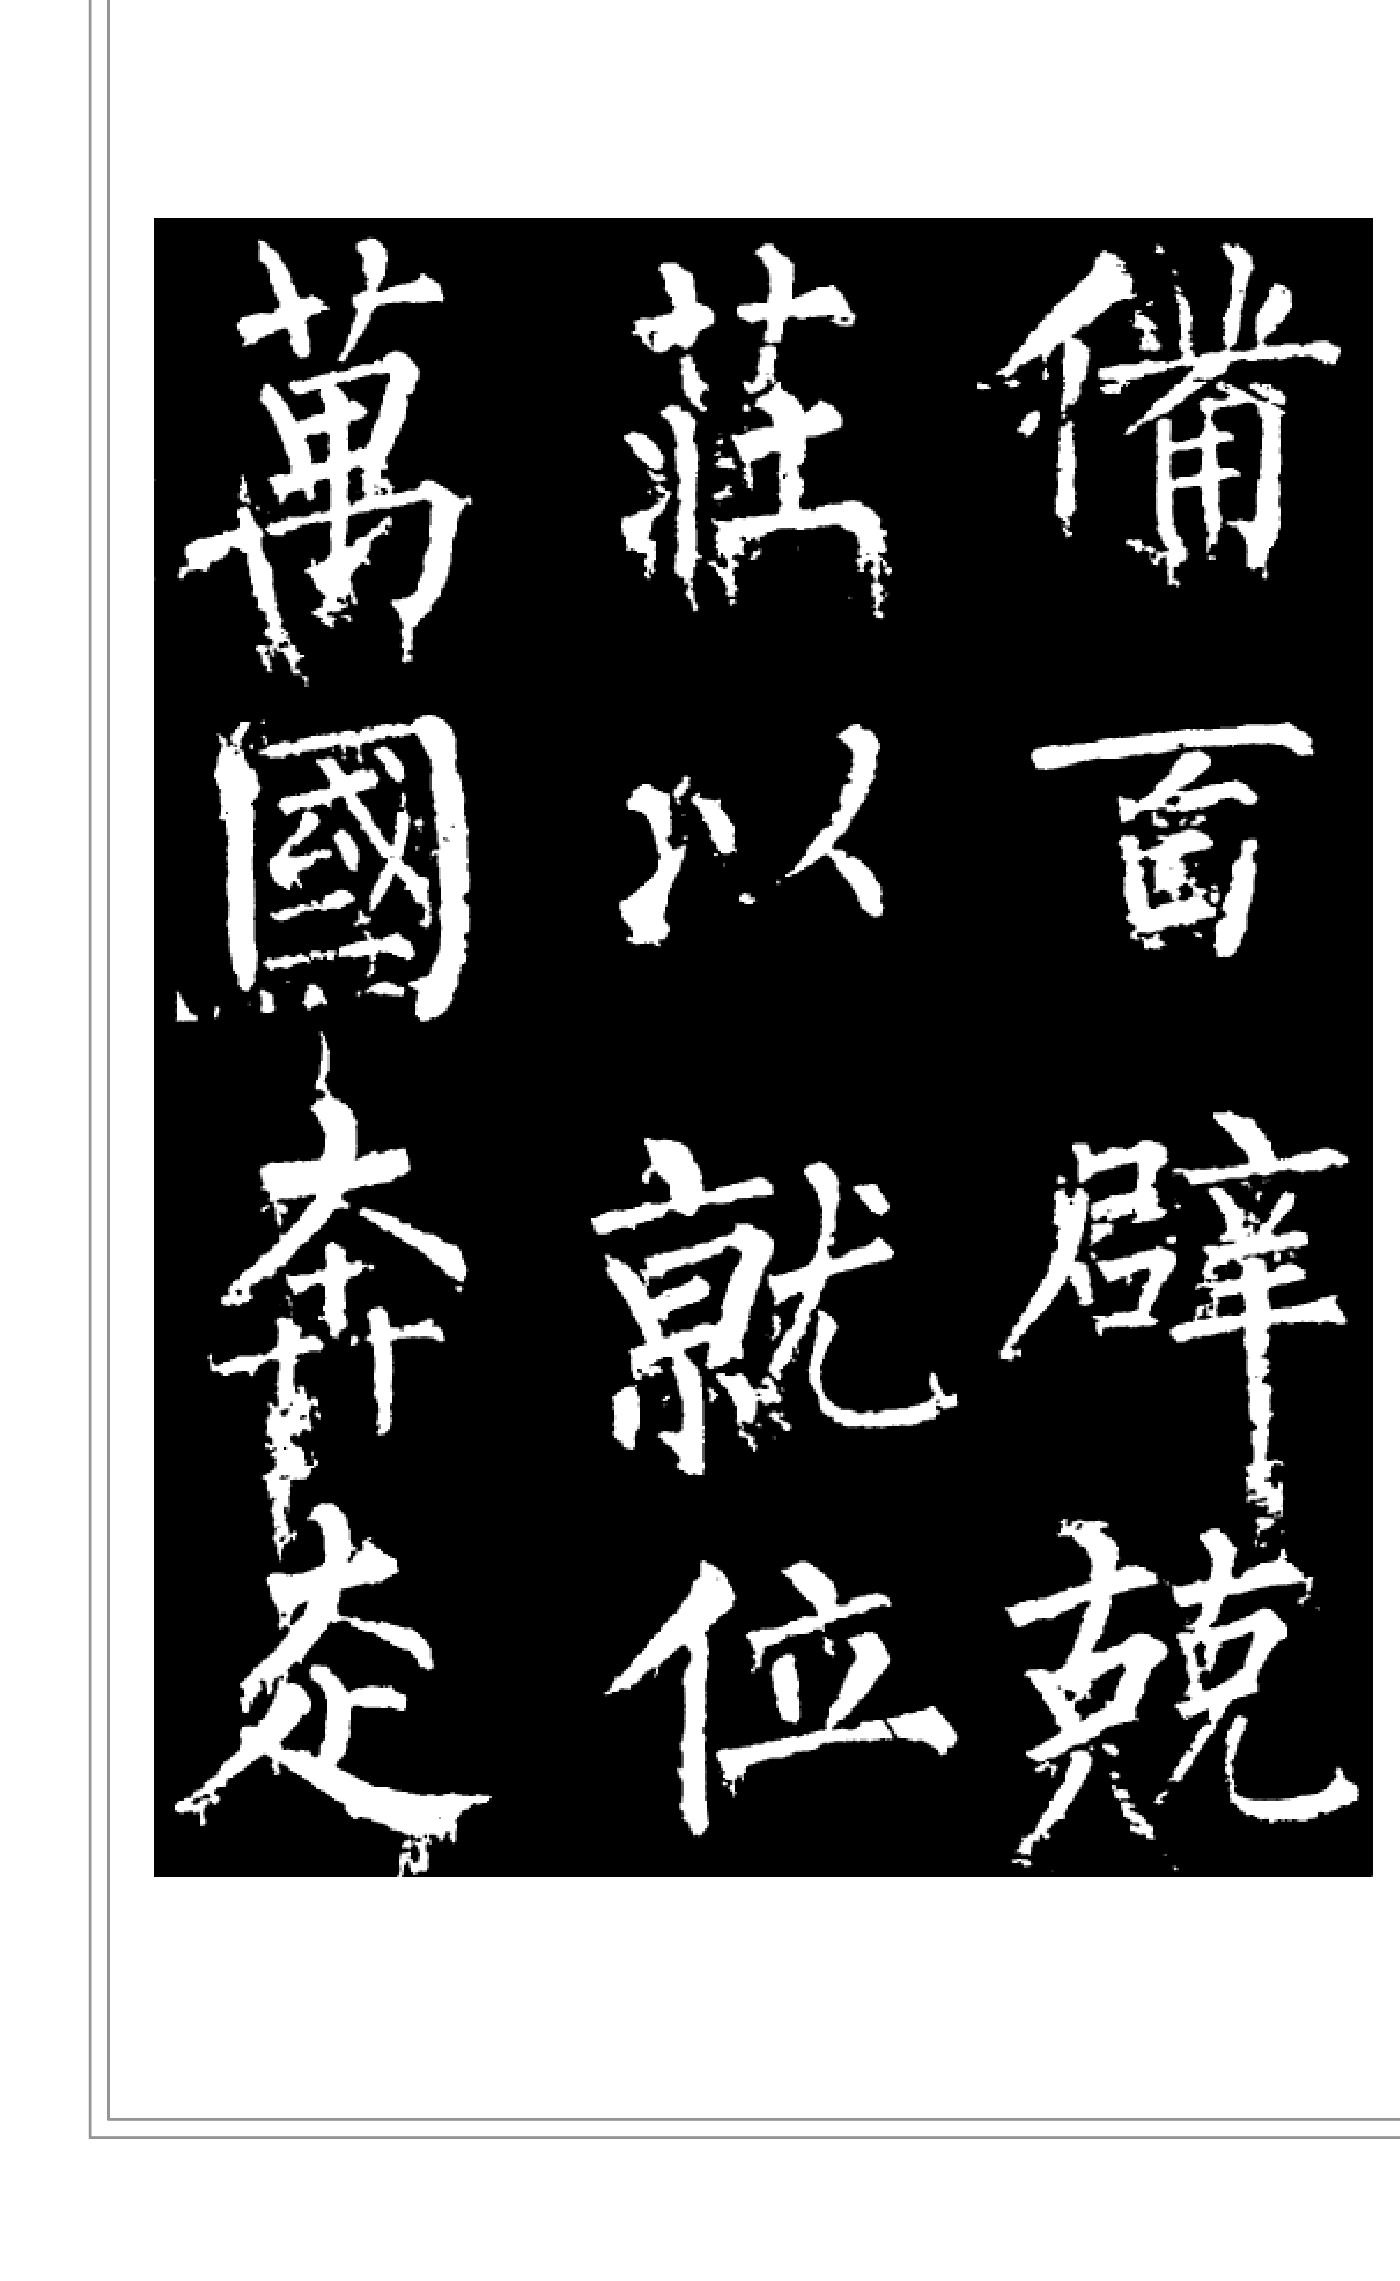 備百辟兢
莊以就位
萬國奔走